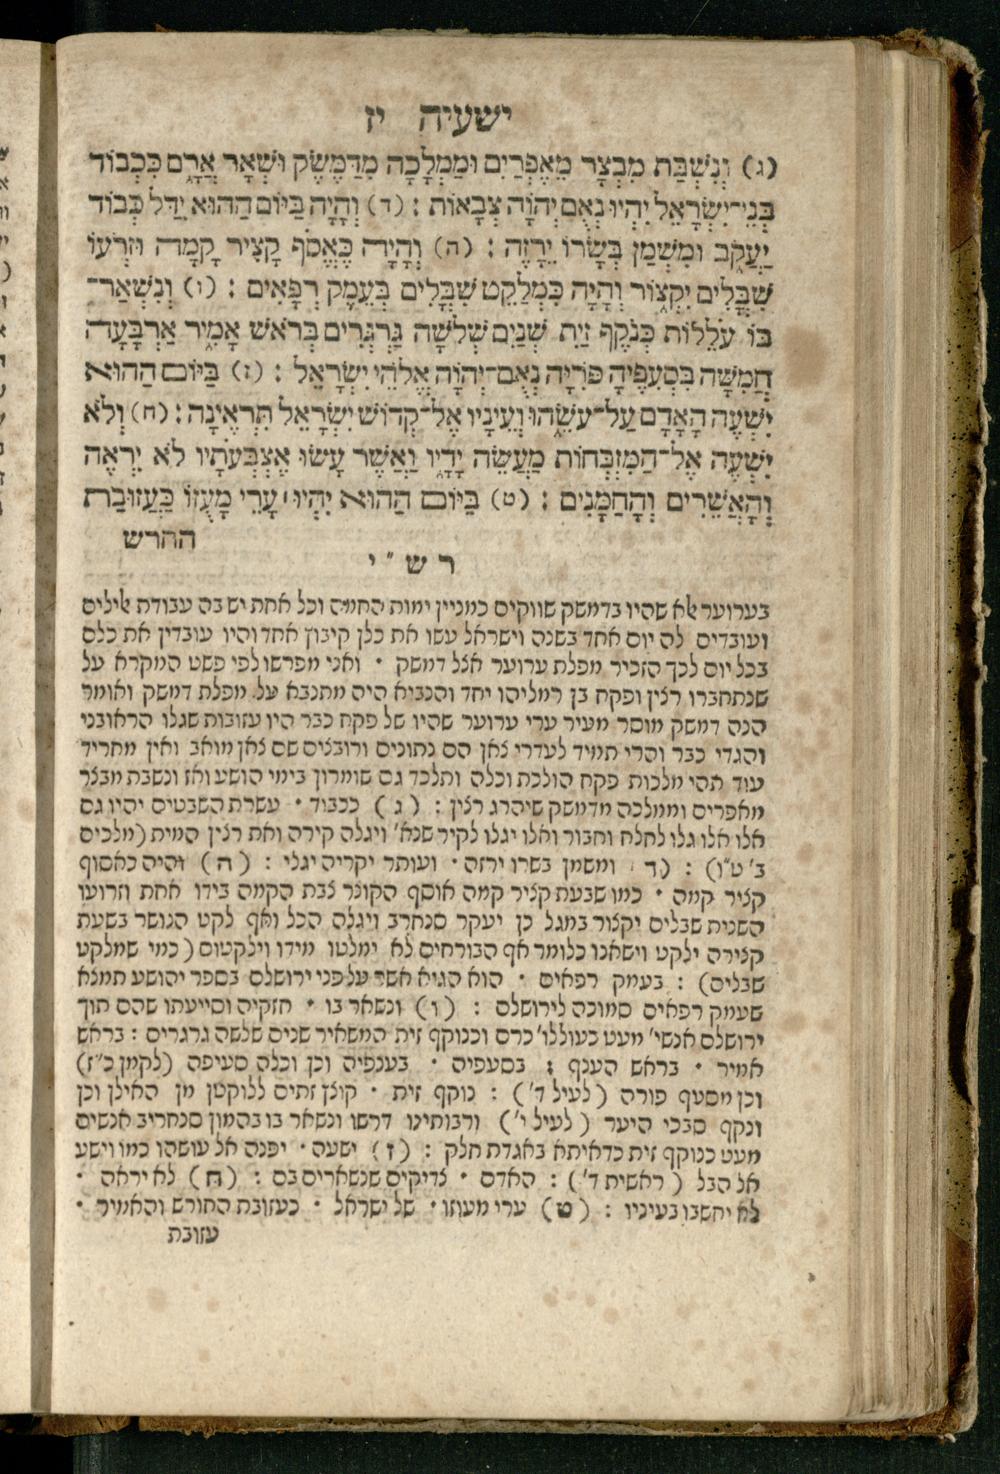 ישעיה יז
(ג) וְנִשְׁבַּת מִבְצָר מֵאֶפְרַיִם וּמַמְלָכָה מִדַּמֶּשֶׂק וּשְׁאָר אֲרָם כִּכְבוֹד
בְּנֵי־יִשְׂרָאֵל יִהְיוּ נְאֻם יְהוָֹה צְבָאוֹת : (ד) וְהָיָה בַּיּוֹם הַהוּא יִדַּל כְּבוֹד
יַעֲקֹב וּמִשְׁמַן בְּשָׂרוֹ יֵרָזֶה : (ה) וְהָיָה כֶּאֱסֹף קָצִיר קָמָה וּזְרֹעוֹ
שִׁבֳּלִים יִקְצוֹר וְהָיָה כִּמְלַקֵּט שִׁבֳּלִים בְּעֵמֶק רְפָאִים : (ו) וְנִשְׁאַר־
בּוֹ עֹלֵלוֹת כְּנֹקֶף זַיִת שְׁנַיִם שְׁלֹשָׁה גַּרְגְּרִים בְּרֹאשׁ אָמִיר אַרְבָּעָה
חֲמִשָּׁה בִּסְעִפֶיהָ פּוֹרִיָּה נְאֻם־יְהוָֹה אֱלֹהֵי יִשְׂרָאֵל : (ז) בַּיּוֹם הַהוּא
יִשְׁעֶה הָאָדָם עַל־עֹשֵׂהוּ וְעֵינָיו אֶל־קְדוֹשׁ יִשְׂרָאֵל תִּרְאֶינָה : (ח) וְלֹא
יִשְׁעֶה אֶל־הַמִּזְבְּחוֹת מַעֲשֵׂה יָדָיו וַאֲשֶׁר עָשׂוּ אֶצְבְּעֹתָיו לֹא יִרְאֶה
וְהָאֲשֵׁרִים וְהָחַמָּנִים : (ט) בַּיּוֹם הַהוּא יִהְיוּ ׀ עָרֵי מָעֻזּוֹ כַּעֲזוּבַת
החרש
ר ש " י
בערוער לא שהיו בדמשק שווקים כמניין ימות החמה וכל אחת יש בה עבודת אילים
ועובדים לה יום אחד בשנה וישראל עשו את כלן קיבוץ אחד והיו עובדין את כלם
בכל יום לכך הזכיר מפלת ערוער אצל דמשק • ואני מפרשו לפי פשט המקרא על
שנתחברו רצין ופקח בן רמליהו יחד והנביא היה מתנבא על מפלת דמשק ואומר
הנה דמשק מוסר מעיר ערי ערוער שהיו של פקח כבר היו עזובות שגלו הראובני
והגדי כבר והרי תמיד לעדרי צאן הם נתונים ורובצים שם צאן מואב ואין מחריד
עוד תהי מלכות פקח הולכת וכלה ותלכד גם שומרון בימי הושע ואז ונשבת מבצר
מאפרים וממלכה מדמשק שיהרג רצין : (ג) ככבוד • עשרת השבטים יהיו גם
אלו אלו גלו לחלח וחבור ואלו יגלו לקיר שנא' ויגלה קירה ואת רצין המית (מלכים
ב' ט"ו) : (ד) ומשמן בשרו ירזה • ועותר יקריה יגלי : (ה) והיה כאסוף
קציר קמה • כמו שבעת קציר קמה אוסף הקוצר צבת הקמה בידו אחת וזרועו
השנית שבלים יקצור במגל כן יעקר סנחרב ויגלה הכל ואף לקט הנושר בשעת
קצירה ילקט וישאנו כלומר אף הבורחים לא ימלטו מידו וילקטום (כמי שמלקט
שבלים) : בעמק רפאים • הוא הגיא אשר על פני ירושלם בספר יהושע תמצא
שעמק רפאים סמוכה לירושלם : (ו) ונשאר בו • חזקיה וסייעתו שהם תוך
ירושלם אנשי' מעט כעוללו' כרם וכנוקף זית המשאיר שנים שלשה גרגרים : בראש
אמיר • בראש הענף : בסעפיה • בענפיה וכן וכלה סעיפה (לקמן כ"ז)
וכן מסעף פורה (לעיל ד') : נוקף זית • קוצץ זתים ללוקטן מן האילן וכן
ונקף סבכי היער (לעיל י') ורבותינו דרשו ונשאר בו בהמון סנחריב אנשים
מעט כנוקף זית כדאיתא באגדת חלק : (ז) ישעה • יפנה אל עושהו כמו וישע
אל הבל (ראשית ד') : האדם • צדיקים שנשארים בם : (ח) לא יראה •
לא יחשבו בעיניו : (ט) ערי מעוזו • של ישראל • כעזובת החורש והאמיר •
עזובת